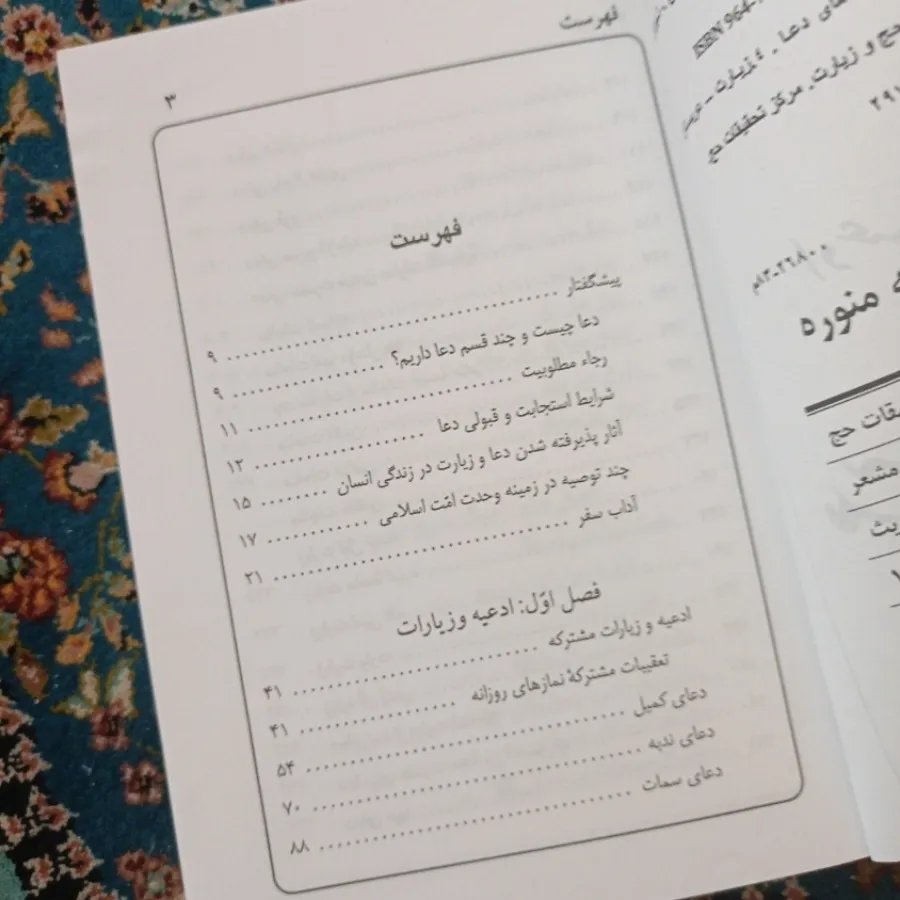 فهرست
۳
فهرست
پیشگفتار ........................................ ۹
دعا چیست و چند قسم دعا داریم؟ .................. ۹
رجاء مطلوبیت ................................ ۱۱
شرایط استجابت و قبولی دعا .................... ۱۲
آثار پذیرفته شدن دعا و زیارت در زندگی انسان ......... ۱۵
چند توصیه در زمینه وحدت امّت اسلامی ............ ۱۷
آداب سفر ..................................... ۲۱
فصل اوّل: ادعیه وزیارات
ادعیه و زیارات مشترکه .............................. ۴۱
تعقیبات مشترکهٔ نمازهای روزانه ................... ۴۱
دعای کمیل ....................................... ۵۴
دعای ندبه ........................................ ۷۰
دعای سمات ...................................... ۸۸
ISBN 964-
دعا . ۲.زیارت
حج و زیارت. مرکز تحقیقات حج
۲۹
۸۳-۲۶۸۰۰م
منوره
حج
مشعر